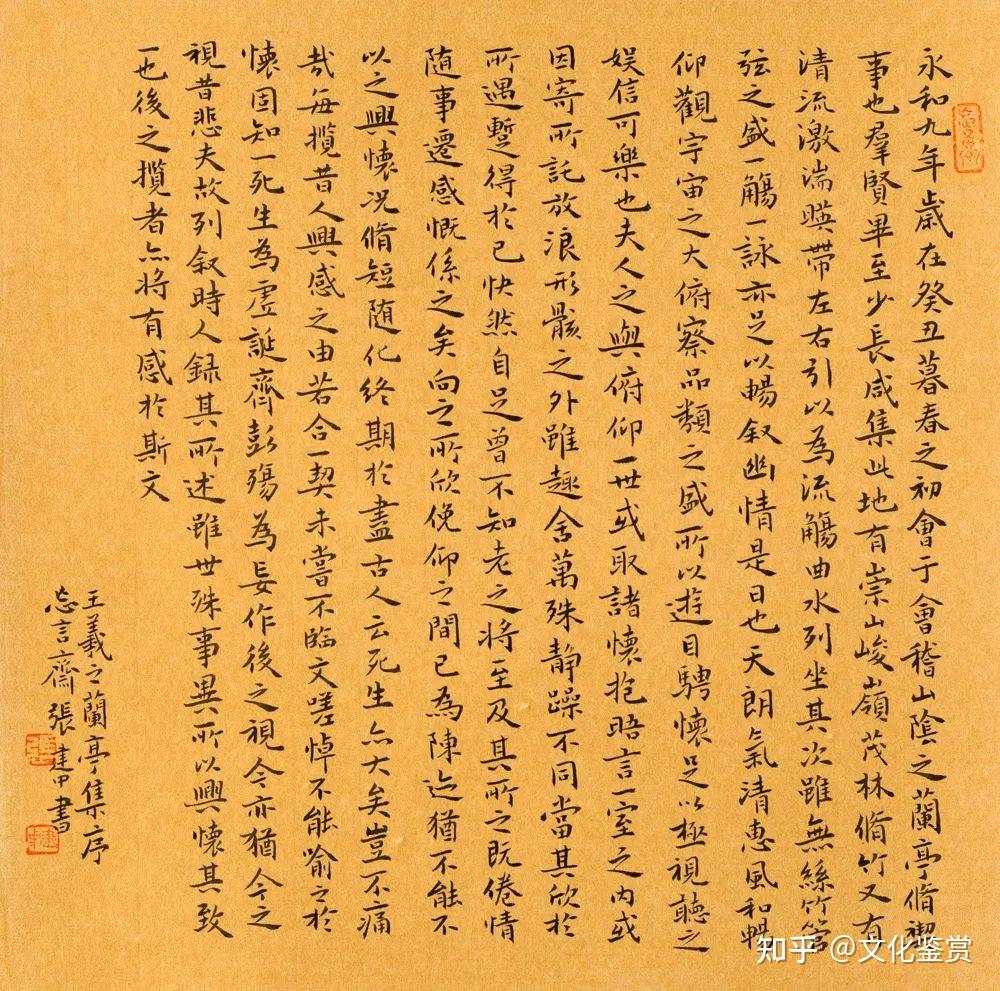 永和九年歲在癸丑暮春之初會于會稽山陰之蘭亭脩禊
事也羣賢畢至少長咸集此地有崇山峻嶺茂林脩竹又有
清流激湍暎帶左右引以為流觴曲水列坐其次雖無絲竹管
弦之盛一觴一詠亦足以暢叙幽情是日也天朗氣清惠風和暢
仰觀宇宙之大俯察品類之盛所以遊目騁懷足以極視聽之
娱信可樂也夫人之與俯仰一世或取諸懷抱晤言一室之内或
因寄所託放浪形骸之外雖趣舍萬殊静躁不同當其欣於
所遇蹔得於己快然自足曾不知老之將至及其所之既倦情
随事遷感慨係之矣向之所欣俛仰之間已為陳迹猶不能不
以之興懷况脩短随化終期於盡古人云死生亦大矣豈不痛
哉每攬昔人興感之由若合一契未嘗不臨文嗟悼不能喻之於
懷固知一死生為虛誕齊彭殤為妄作後之視今亦猶今之
視昔悲夫故列叙時人録其所述雖世殊事異所以興懷其致
一也後之攬者亦將有感於斯文
王羲之蘭亭集序
忘言齋張建甲書
知乎 @文化鉴赏